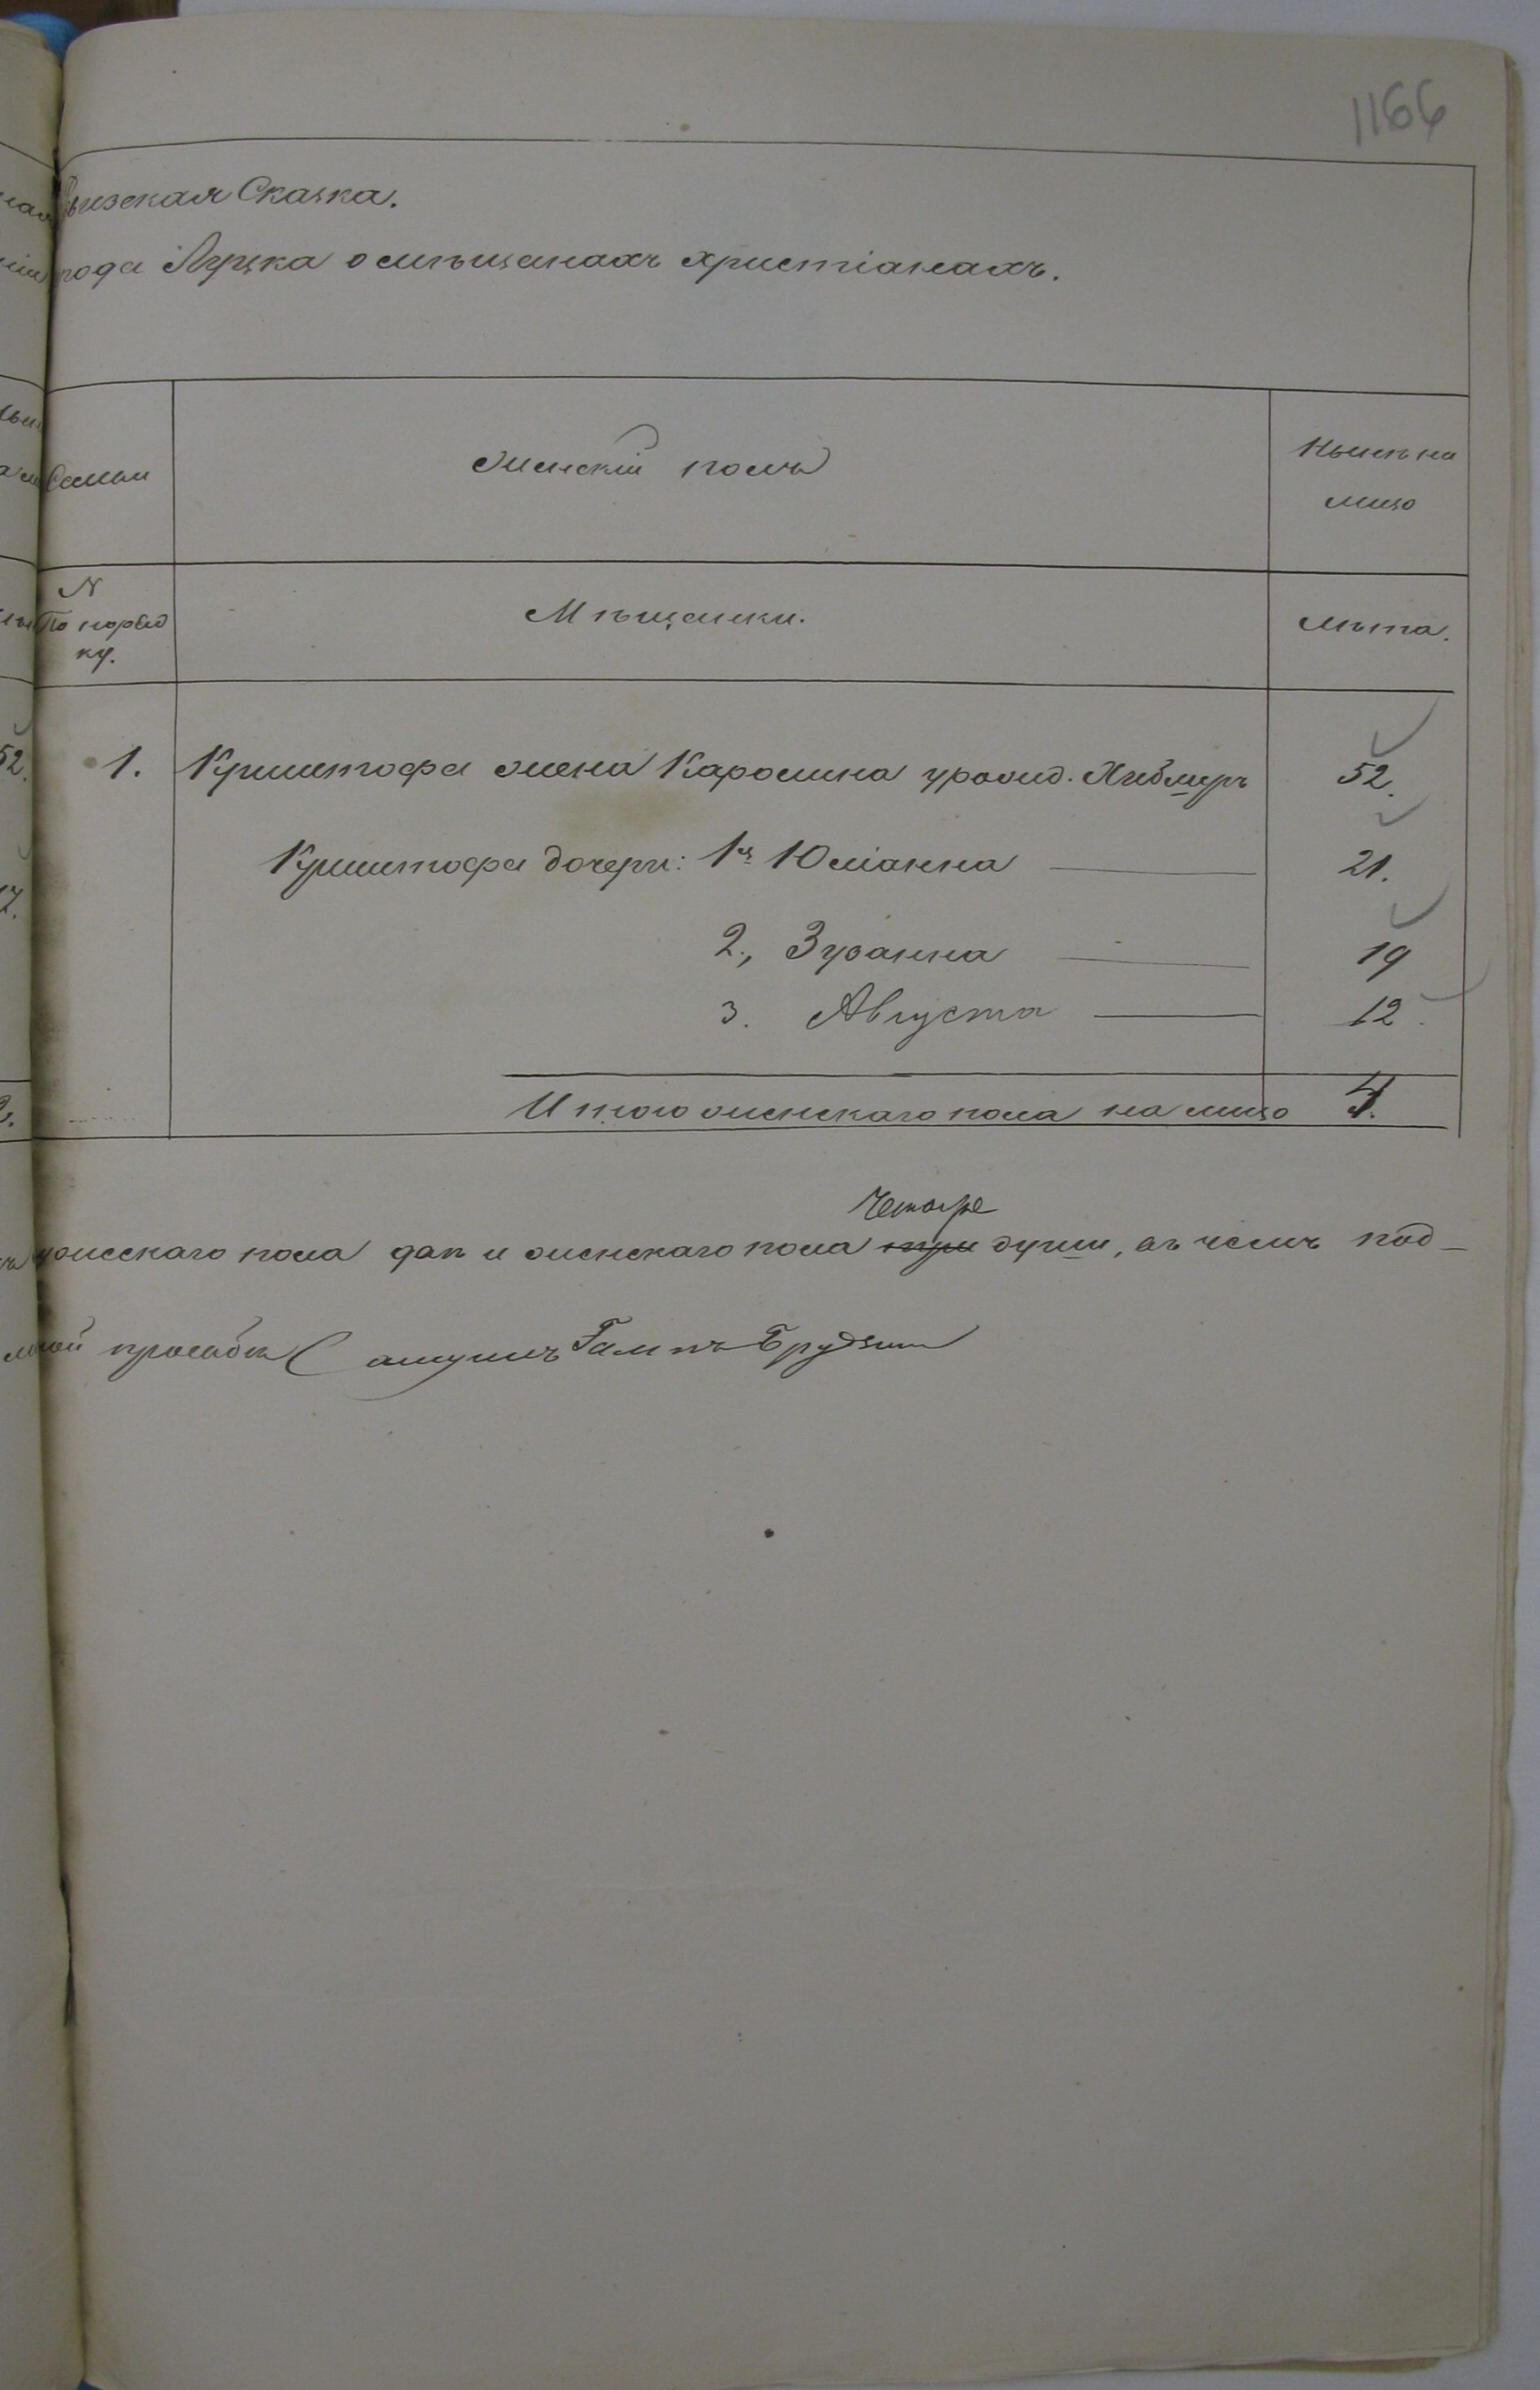 1166
визская Сказка.
рода Луцка о мѣщанахъ христіанахъ.
Семьи
Женскій полъ
Нынѣ на
лицо
N
По поряд
ку.
Мѣщанки.
Лѣта.
52.
1. Криштофа жена Каролина урожд. 52.
Криштофа дочери: 1я Юліанна 21.
2., Зузанна 19
3. Августа 12.
Итого женскаго пола на лицо 4.
Четыре
мужескаго пола два и женскаго пола три души, въ чемъ под-
мой прозьбѣ